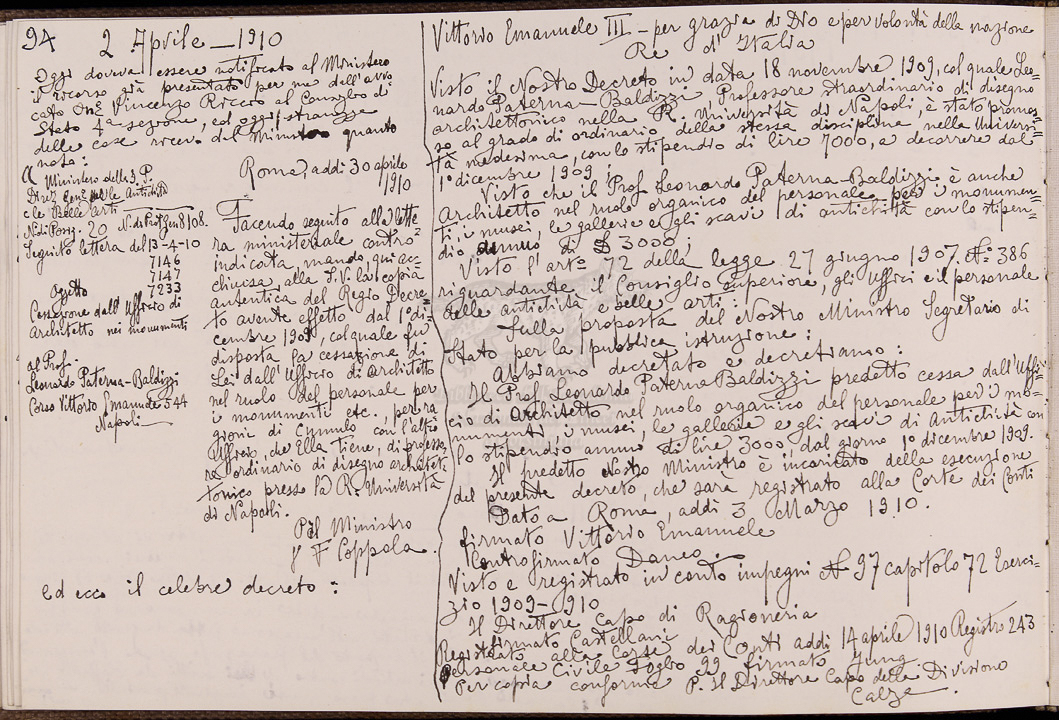 94 2 Aprile — 1910
Oggi doveva essere notificato al Ministero
il ricorso già presentato per me dall'avvo
cato On.e Vincenzo Riccio al Consiglio di
Stato 4a sezione, ed oggi, stranezza
delle cose ricevo dal Ministero quanto
nota:
Ministero della I. P.
Direz. Gen. delle Antichità
e le Belle Arti
N. di Posiz. 20 N. di Prot. Gen. 8108.
Seguito lettera del 13-4-10
7146
7147
7233
Oggetto
Cessazione dall'Ufficio di
Architetto nei monumenti
al Prof.
Leonardo Paterna-Baldizzi
Corso Vittorio Emanuele 544
Napoli
Roma, addì 30 aprile
1910
Facendo seguito alla lette
ra ministeriale contro
indicata, mando, qui ac-
chiusa, alla S.V. la copia
autentica del Regio Decre=
to avente effetto dal 1° di=
cembre 1909, col quale fu
disposta la cessazione di
Lei dall'Ufficio di Architetto
nel ruolo del personale per
i monumenti etc., per ra
gione di cumulo con l'altro
Ufficio, che Ella tiene, di professo
re ordinario di disegno architet=
tonico presso la R. Università
di Napoli.
Pel Ministro
f F Coppola.
ed ecco il celebre decreto:
Vittorio Emanuele III — per grazia di Dio e per volontà della nazione
Re d'Italia
Visto il Nostro Decreto in data 18 novembre 1909, col quale Leo-
nardo Paterna-Baldizzi Professore straordinario di disegno
architettonico nella R. Università di Napoli, è stato promos-
so al grado di ordinario della stessa disciplina nella Universi-
tà medesima, con lo stipendio di lire 7000, a decorrere dal
1° dicembre 1909;
Visto che il Prof. Leonardo Paterna-Baldizzi è anche
Architetto nel ruolo organico del personale per i monumen-
ti, i musei, le gallerie e gli scavi di antichità con lo stipen-
dio annuo di 3000;
Visto l'arto 72 della legge 27 giugno 1907. No 386
riguardante il Consiglio superiore, gli Uffici e il personale
delle antichità e belle arti:
Sulla proposta del Nostro Ministro Segretario di
Stato per la pubblica istruzione:
Abbiamo decretato e decretiamo:
Il Prof. Leonardo Paterna Baldizzi predetto cessa dall'Uffi-
cio di Architetto nel ruolo organico del personale per i mo-
numenti, i musei, le gallerie e gli scavi di Antichità con
lo stipendio annuo di lire 3000, dal giorno 1° dicembre 1909.
Il predetto Nostro Ministro è incaricato della esecuzione
del presente decreto, che sarà registrato alla Corte dei Conti
Dato a Roma, addì 3 Marzo 1910.
firmato Vittorio Emanuele
Controfirmato Daneo.
Visto e registrato in conto impegni No 97 capitolo 72 Eserci=
zio 1909-910
Il Direttore Capo di Ragioneria
firmato Castellani
Registrato alla Corte dei Conti addì 14 aprile 1910 Registro 243
Personale Civile Foglio 99 firmato Jung
Per copia conforme P. Il Direttore Capo della Divisione
Calza.